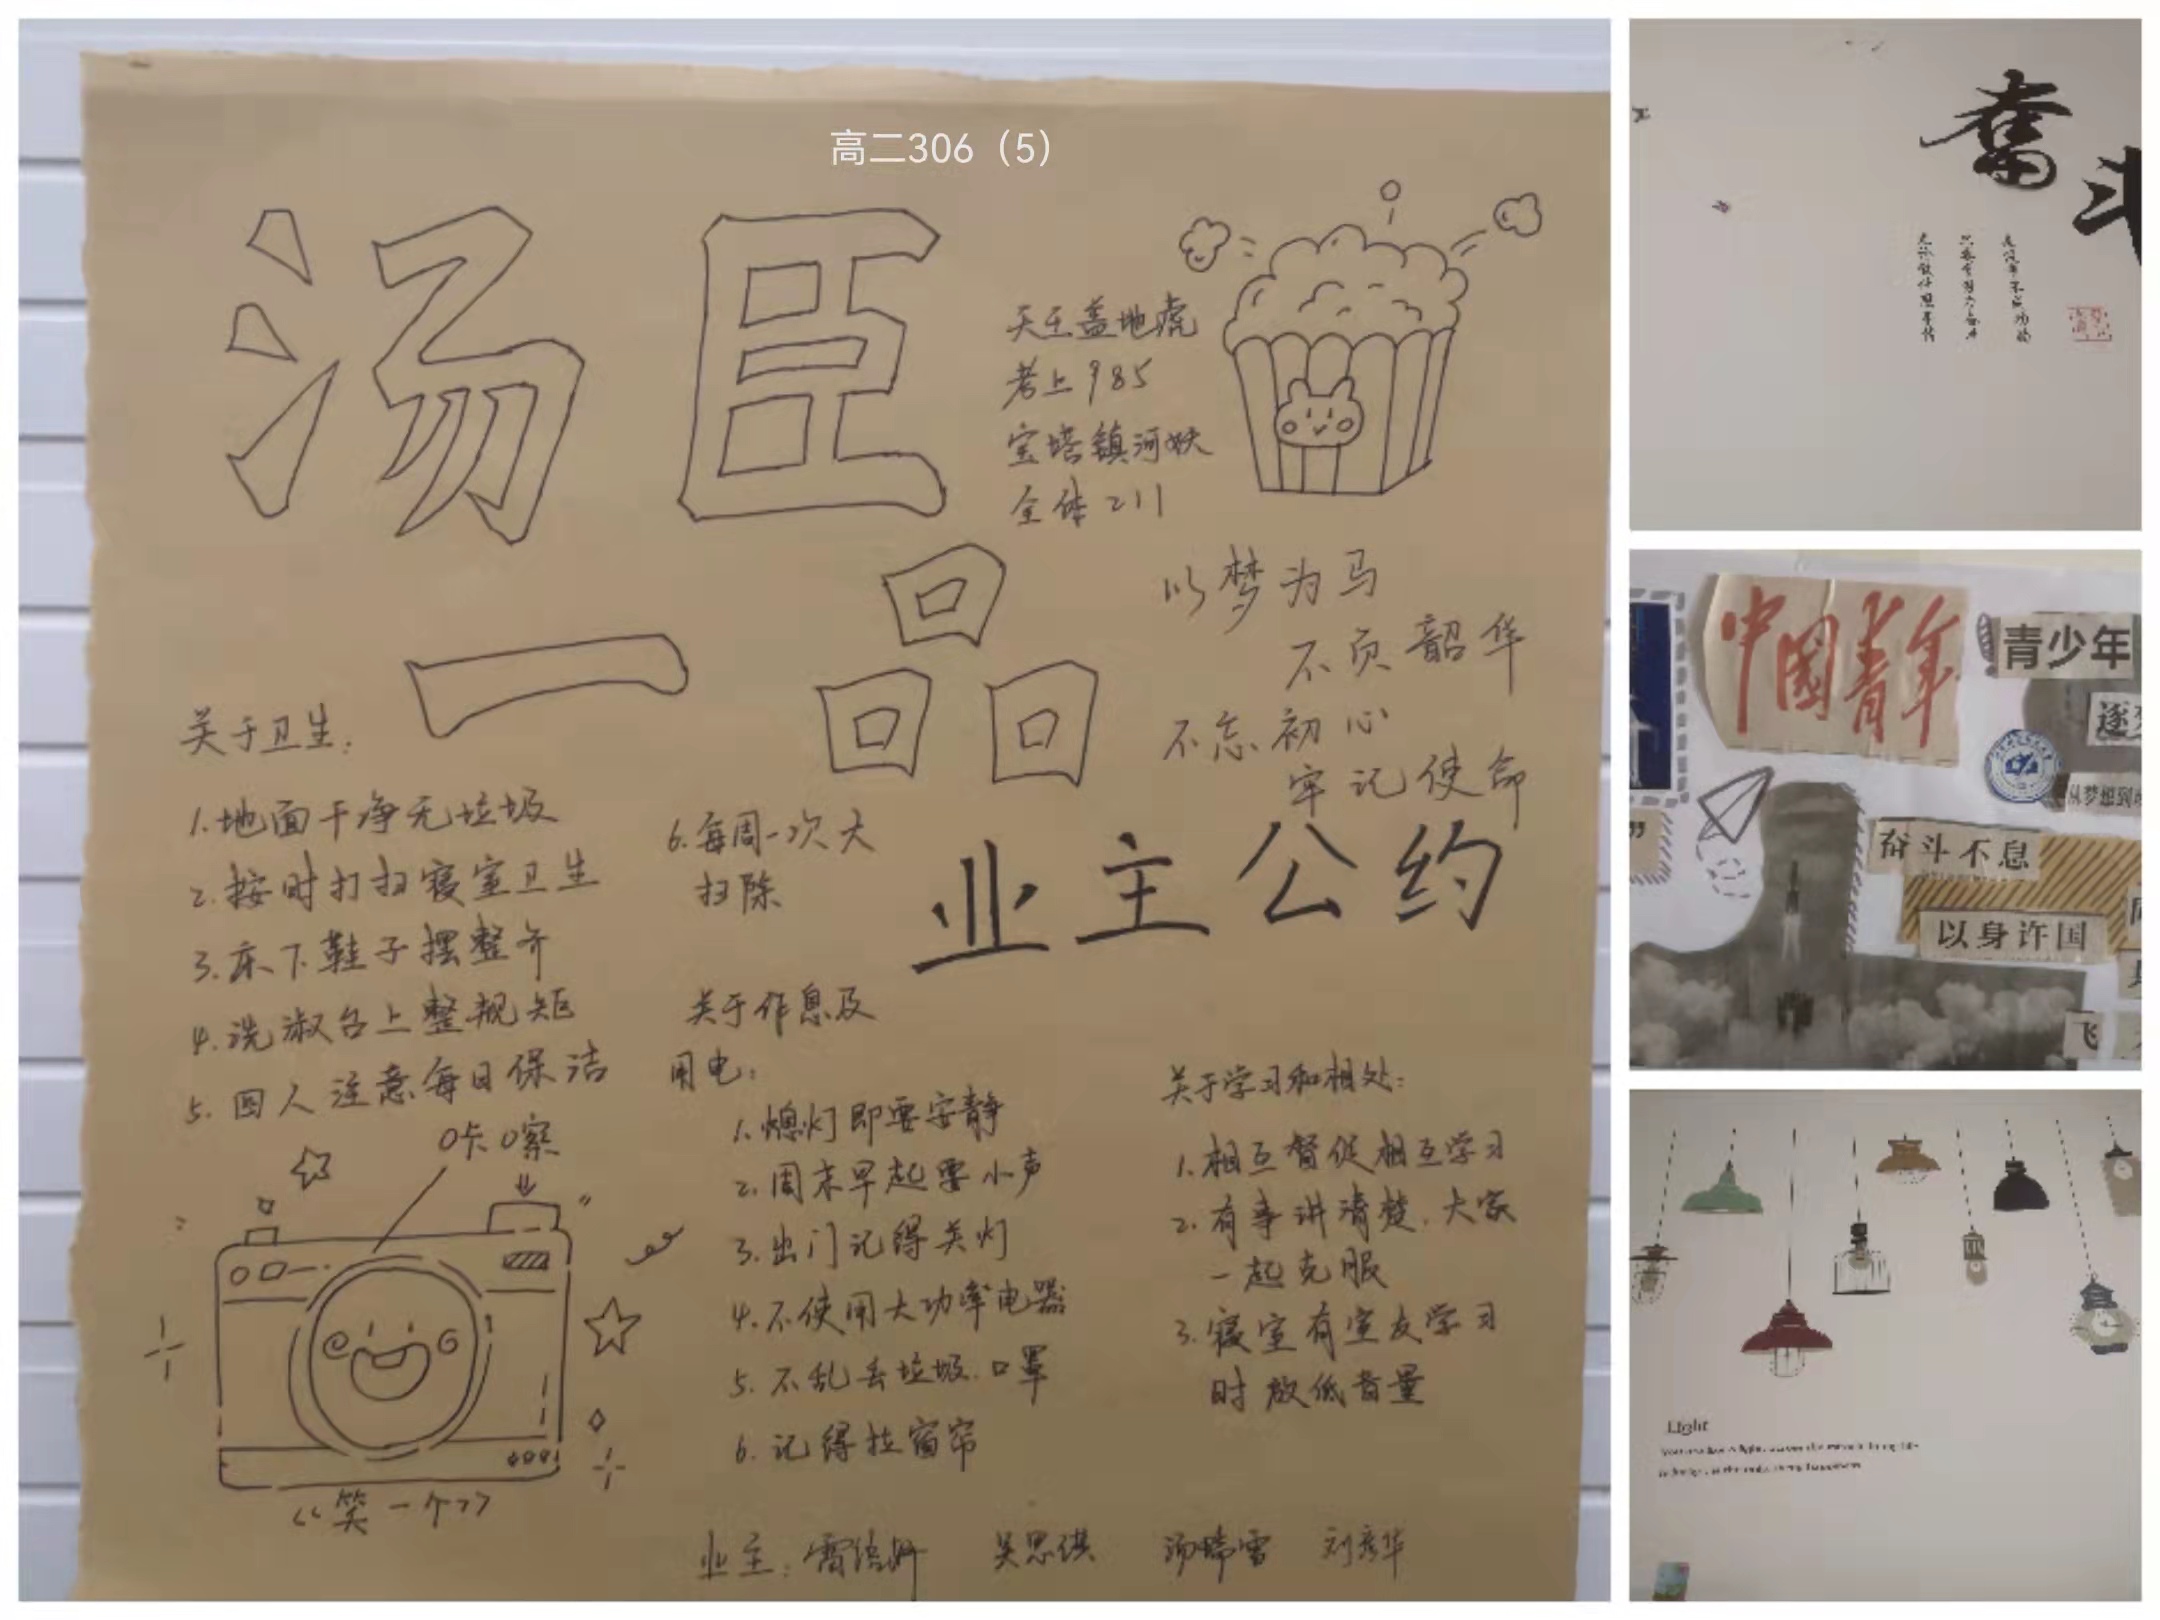 高二306（5）
汤臣
一品
天王盖地虎
考上985
宝塔镇河妖
全体211
以梦为马
不负韶华
不忘初心
牢记使命
业主公约
关于卫生：
1.地面干净无垃圾
2.按时打扫寝室卫生
3.床下鞋子摆整齐
4.洗漱台上整规矩
5.因人注意每日保洁
6.每周一次大
扫除
关于作息及
用电：
1.熄灯即要安静
2.周末早起要小声
3.出门记得关灯
4.不使用大功率电器
5.不乱丢垃圾.口罩
6.记得拉窗帘
关于学习和相处：
1.相互督促相互学习
2.有事讲清楚，大家
一起克服
3.寝室有室友学习
时放低音量
咔嚓
“笑一个”
业主： 吴思琪 汤瑞雪 刘彦华
奋斗
中国青年
青少年
从梦想到
奋斗不息
以身许国
飞
Light